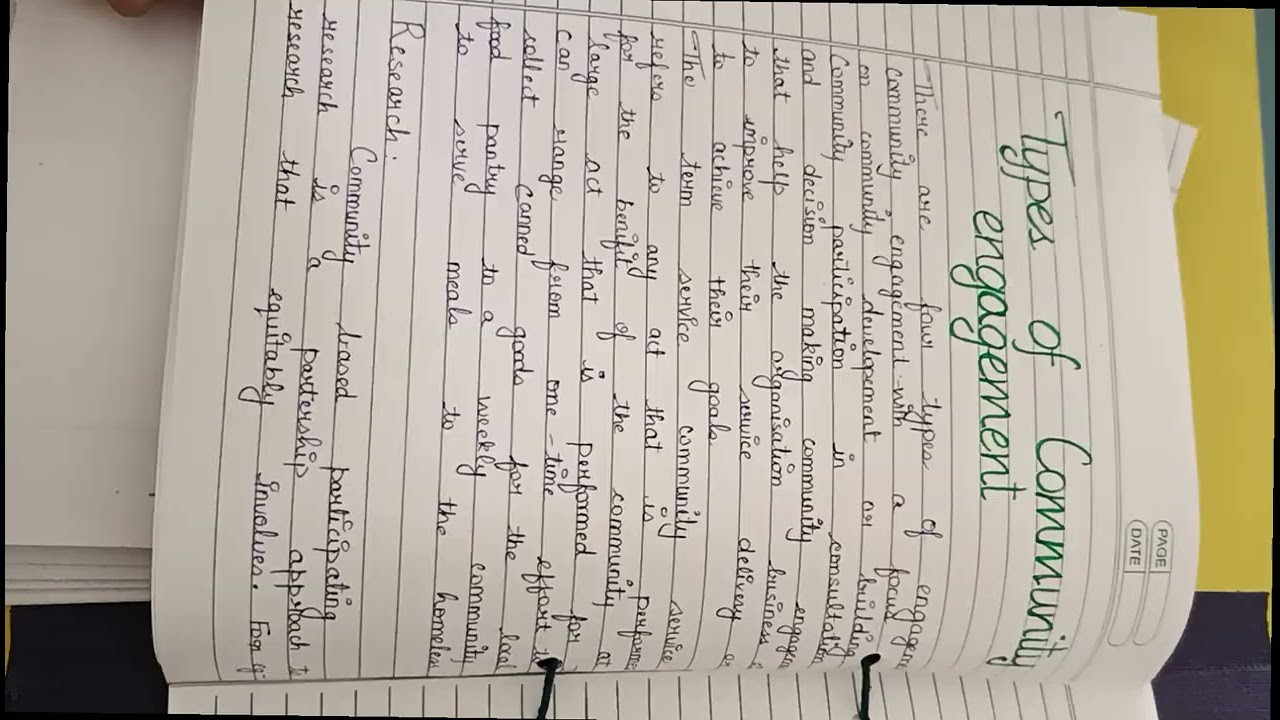 PAGE
DATE
Types of Community
engagement
There are four types of
community engagement with a focus
on community developement or building
Community participation in consultation
and decision making community
that help the organisation business
to improve their service delivery
to achieve their goals
The term service community service
refers to any act that is
for the benifit of the community at
large act that is performed for
can range from one-time effort
collect canned goods for the local
food pantry to a weekly community
to serve meals to the homeless
Research:
Community based participating
research is a partership approach
research that equitably involves. For